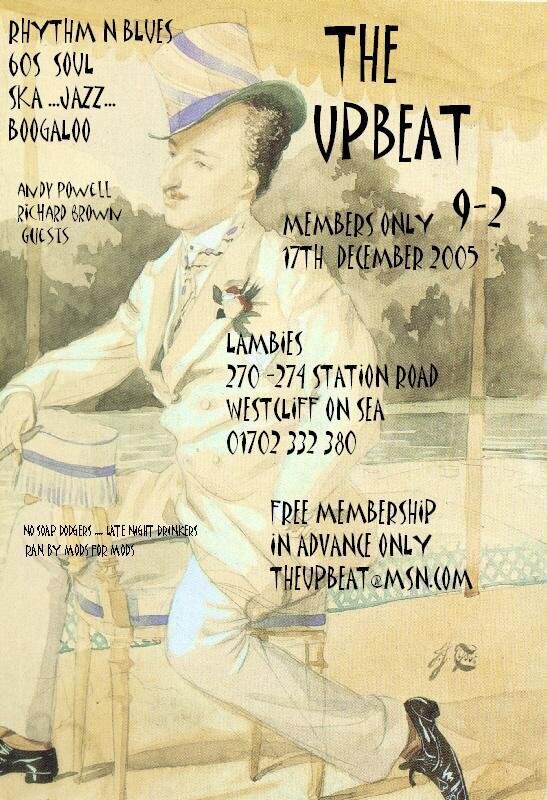 RHYTHM N BLUES
60S SOUL
SKA ...JAZZ...
BOOGALOO
THE
UPBEAT
ANDY POWELL
RICHARD BROWN
GUESTS
MEMBERS ONLY 9-2
17TH DECEMBER 2005
LAMBIES
270 -274 STATION ROAD
WESTCLIFF ON SEA
01702 332 380
NO SOAP DODGERS .... LATE NIGHT DRINKERS
RAN BY MODS FOR MODS
FREE MEMBERSHIP
IN ADVANCE ONLY
THEUPBEAT@MSN.COM